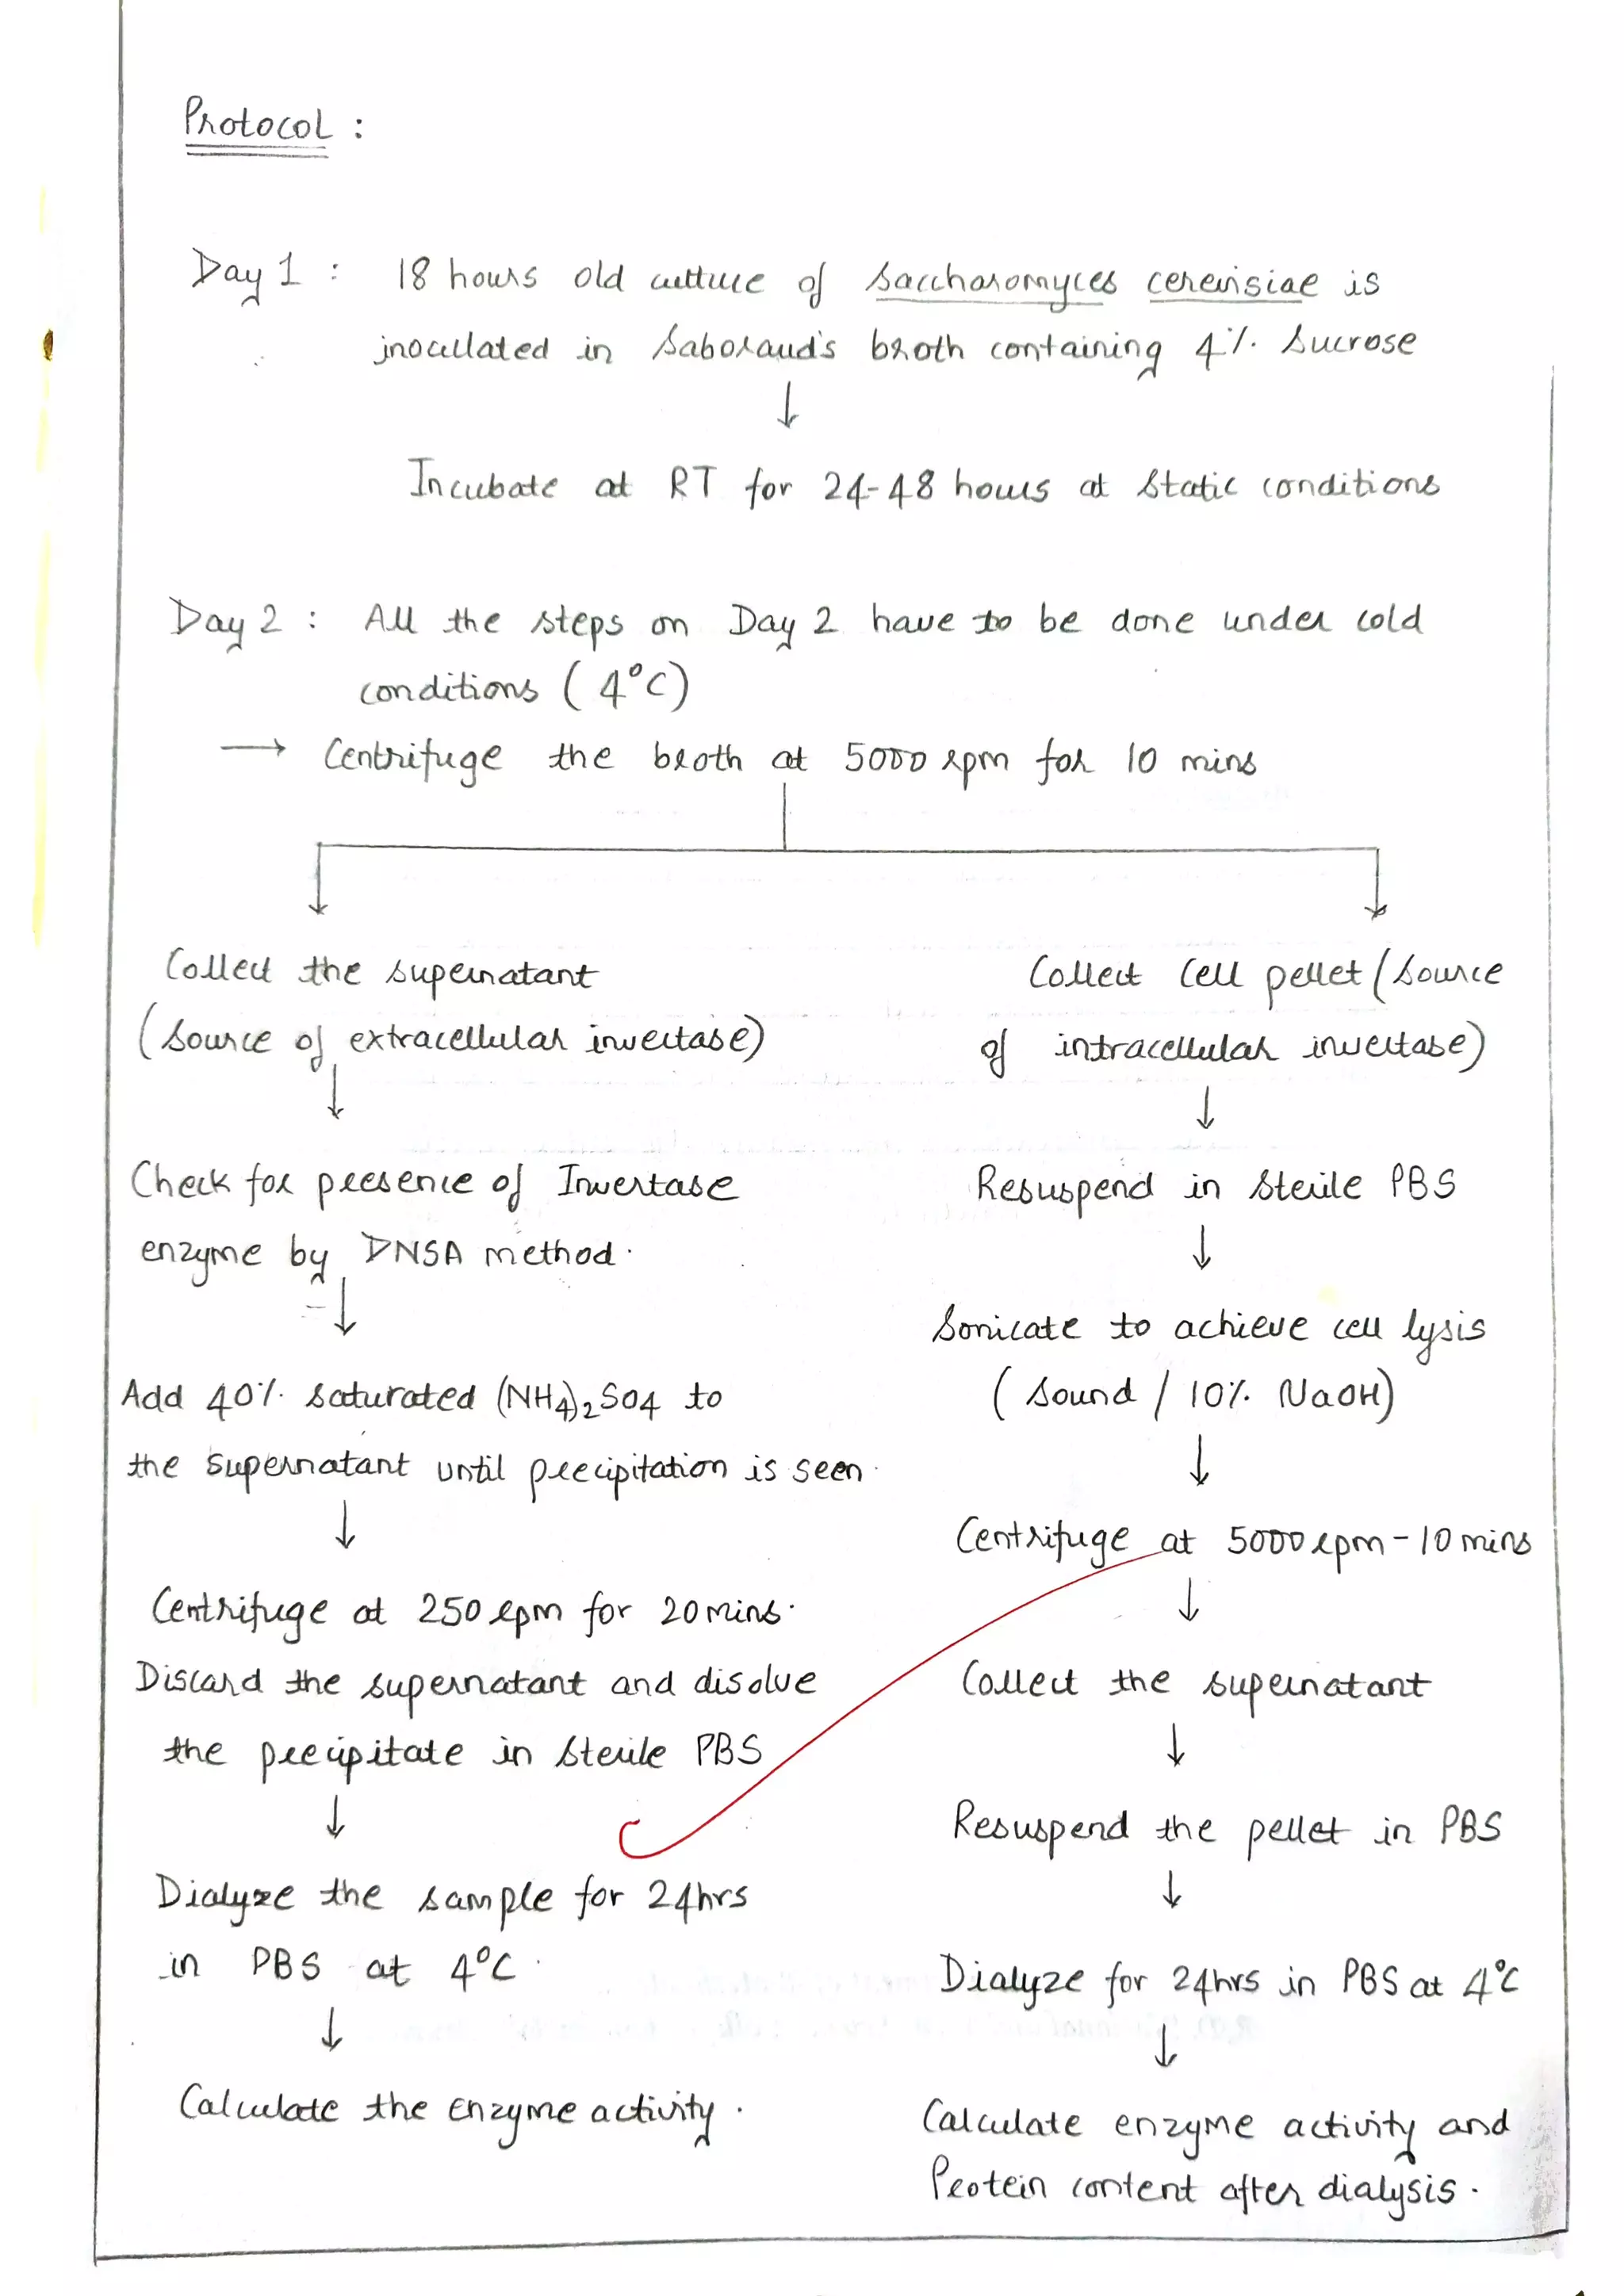 Protocol :
Day 1 : 18 hours old culture of Saccharomyces cerevisiae is
inocullated in Saboraud's broth containing 4% Sucrose
↓
Incubate at RT for 24-48 hours at static conditions
Day 2 : All the steps on Day 2 have to be done under cold
conditions (4°C)
→ Centrifuge the broth at 5000 rpm for 10 mins
Collect the supernatant
(source of extracellular invertase)
↓
Check for presence of Invertase
enzyme by DNSA method.
↓
Add 40% saturated (NH4)2SO4 to
the supernatant until precipitation is seen.
↓
Centrifuge at 250 rpm for 20 mins.
Discard the supernatant and disolve
the precipitate in sterile PBS
↓
Dialyze the sample for 24hrs
in PBS at 4°C.
↓
Calculate the enzyme activity.
Collect cell pellet (source
of intracellular invertase)
↓
Resuspend in sterile PBS
↓
Sonicate to achieve cell lysis
(sound / 10% NaOH)
↓
Centrifuge at 5000 rpm - 10 mins
↓
Collect the supernatant
↓
Resuspend the pellet in PBS
↓
Dialyze for 24hrs in PBS at 4°C
↓
Calculate enzyme activity and
Protein content after dialysis.